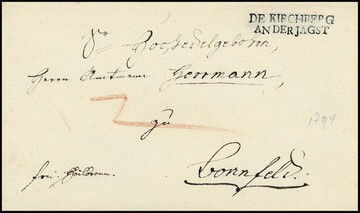 DE KIRCHBERG
AN DER JAGST
Sr Hochedelgebohrn,
Herrn Amtmann Herrmann,
zu
frei Heilbronn. Bonnfeld.
1794